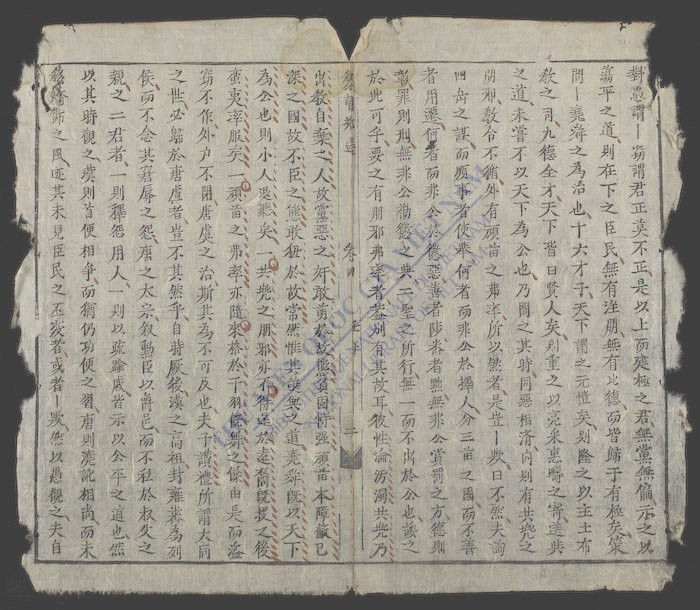 對愚謂丨嘗謂君正莫不正是以上而建極之君無黨無偏示之以
蕩平之道則在下之臣民無有淫朋無有比德而皆歸于有極矣策
問丨堯舜之為治也十六才子天下謂之元愷矣則隆之以主土布
教之司九德全才天下皆曰賢人矣則重之以亮采惠疇之寄違共
之道未嘗不以天下為公也乃爾之其時同惡相濟內則有共兜之
朋邪教令不循外有頑苗之弗率所以然者是豈丨歟曰不然夫詢
四岳之謀而廢事者使鯀何者而非公於擇人分三苗之國而不善
者用遷何者而非公於德惡善者陟否者黜無非公賞罰之方德則
賞罪則刑無非公勸懲之典二聖之所行無一而不出於公也諉之
於此可乎要之有朋邪弗率者差別有其故耳彼性淪汸濁共兜乃
卷四
二
出教自棄之人故黨惡之奸敢勇於故犯負固恃強頑苗本障蔽已
深之國故不臣之態敢狃於故常然惟其或無之道堯舜既以天下
為公也則小人退聽矣一共兜之朋邪亦不得逞於遠竄既授之後
蠻夷率服矣一頑苗之弗率亦隨來格於干羽僬舞之條由是而盜
竊不作外戶不閉唐虞之治斯其為不可及也夫子讚禮所謂大同
之世必歸於唐虞者豈不其然乎自時厥後漢之高祖封雍齒為列
侯而不念其窘辱之怨唐之太宗敘勳臣以爵邑而不私於叔父之
親之二君者一則釋怨用人一則以疏踰戚皆示以公平之道也然
以其時觀之漢則首便相爭而猶仍功便之習唐則澆訛相尚而未
之風迹其未見臣民之丕變者或者丨歟然以愚觀之夫自